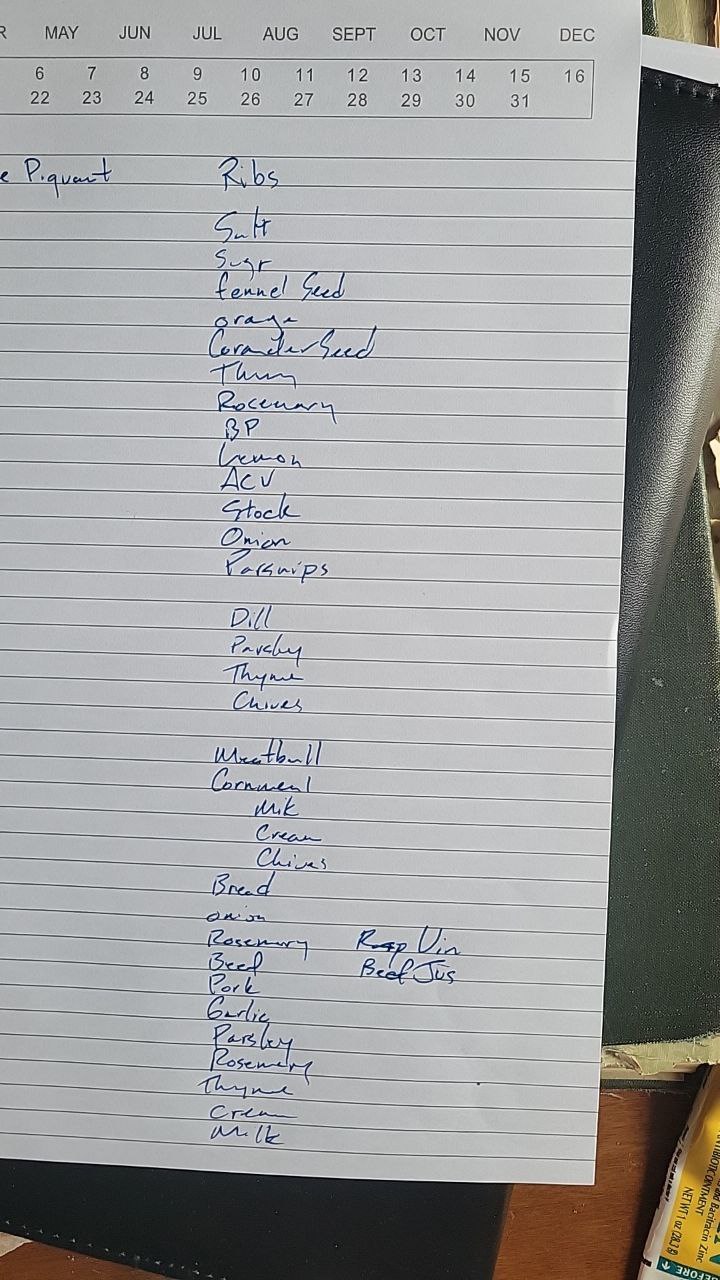 R MAY JUN JUL AUG SEPT OCT NOV DEC
6 7 8 9 10 11 12 13 14 15 16
22 23 24 25 26 27 28 29 30 31
e Piquant
Ribs
Salt
Sugr
fennel Seed
orange
Corander Seed
Thym
Rosemary
BP
Lemon
ACV
Stock
Onion
Parsnips
Dill
Parsley
Thyme
Chives
Meatball
Cornmeal
Milk
Cream
Chives
Bread
onion
Rosemary Vin
Beef Beef Jus
Pork
Garlic
Parsley
Rosemary
Thyme
Cream
Milk
NTIBIOTIC OINTMENT
and Bacitracin Zinc
NET WT 1 oz (28.3 g)